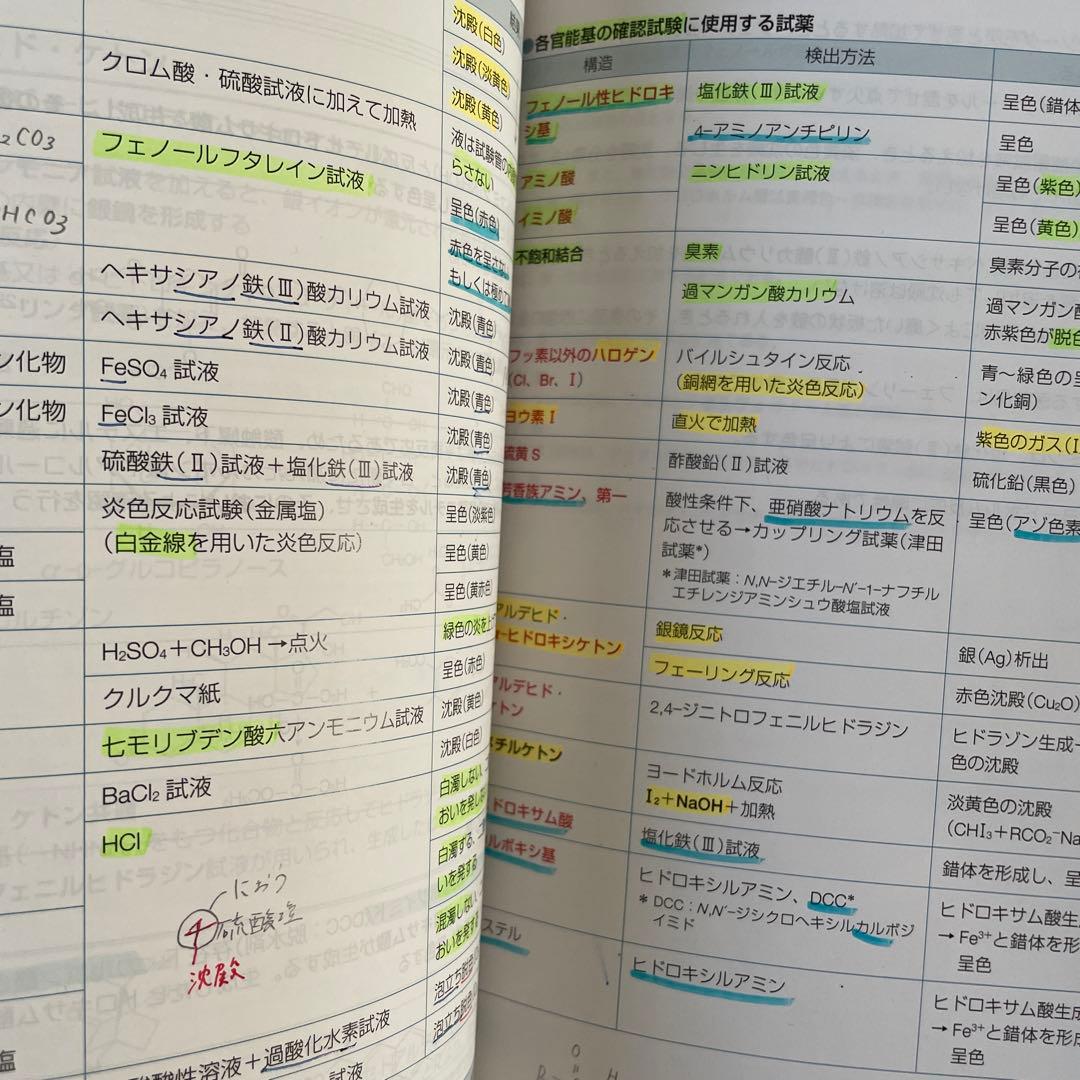 沈殿(白色)
沈殿(淡黄色)
沈殿(黄色)
クロム酸・硫酸試液に加えて加熱
液は試験管の
らさない
2CO3
フェノールフタレイン試液
呈色(赤色)
HCO3
赤色を呈さな
もしくは極めて
ヘキサシアノ鉄(Ⅲ)酸カリウム試液
沈殿(青色)
ヘキサシアノ鉄(Ⅱ)酸カリウム試液
沈殿(青色)
ン化物
FeSO₄ 試液
沈殿(青色)
ン化物
FeCl₃ 試液
沈殿(青色)
硫酸鉄(Ⅱ)試液+塩化鉄(Ⅲ)試液
沈殿(青色)
炎色反応試験(金属塩)
(白金線を用いた炎色反応)
呈色(淡紫色)
塩
呈色(黄色)
塩
呈色(黄赤色)
H₂SO₄+CH₃OH →点火
緑色の炎を上
クルクマ紙
呈色(赤色)
七モリブデン酸六アンモニウム試液
沈殿(黄色)
BaCl₂ 試液
沈殿(白色)
HCl
白濁しない、
おいを発しな
白濁する、
いを発する
混濁しない
おいを発する
におう
硫酸塩
沈殿
泡立ち脱色
泡立ち脱色
塩
酸性溶液+過酸化水素試液
試液
●各官能基の確認試験に使用する試薬
構造
検出方法
フェノール性ヒドロキ
シ基
塩化鉄(Ⅲ)試液
呈色(錯体
4-アミノアンチピリン
呈色
アミノ酸
ニンヒドリン試液
呈色(紫色)
イミノ酸
呈色(黄色)
不飽和結合
臭素
臭素分子の
過マンガン酸カリウム
過マンガン酸
赤紫色が脱色
フッ素以外のハロゲン
(Cl、Br、I)
バイルシュタイン反応
(銅網を用いた炎色反応)
青~緑色の
ン化銅)
ヨウ素 I
直火で加熱
紫色のガス(I
硫黄 S
酢酸鉛(Ⅱ)試液
硫化鉛(黒色)
芳香族アミン、第一
酸性条件下、亜硝酸ナトリウムを反
応させる→カップリング試薬(津田
試薬*)
*津田試薬:N,N-ジエチル-N′-1-ナフチル
エチレンジアミンシュウ酸塩試液
呈色(アゾ色素
アルデヒド・
α-ヒドロキシケトン
銀鏡反応
銀(Ag)析出
フェーリング反応
赤色沈殿(Cu₂O)
アルデヒド・
ケトン
2,4-ジニトロフェニルヒドラジン
ヒドラゾン生成
色の沈殿
メチルケトン
ヨードホルム反応
I₂+NaOH+加熱
淡黄色の沈殿
(CHI₃+RCO₂⁻Na
ドロキサム酸
塩化鉄(Ⅲ)試液
錯体を形成し、呈
ルボキシ基
ヒドロキシルアミン、DCC*
* DCC:N,N′-ジシクロヘキシルカルボジ
イミド
ヒドロキサム酸生
→ Fe³⁺と錯体を形
呈色
ステル
ヒドロキシルアミン
ヒドロキサム酸生成
→ Fe³⁺と錯体を形
呈色
O
H